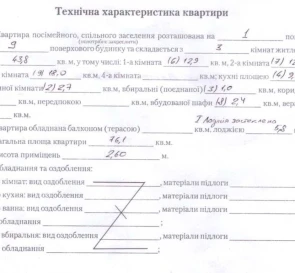 Технічна характеристика квартири
квартира посімейного, спільного заселення розташована на 1 по
(потрібне закреслити)
9 поверхового будинку та складається з 3 кімнат житл
43,8 кв.м, у тому числі: 1-а кімната (6) 12,3 кв.м, 2-а кімната (7)
кімната (9) 18,0 кв.м, 4-а кімната кв.м; кухні площею (4)
ної кімнати (2) 2,7 кв.м, вбиральні (поєднаної) (3) 1,0 кв.м, кори
кв.м, передпокою кв.м, вбудованої шафи (8) 2,4 кв.м,
І лоджія засклена
квартира обладнана балконом (терасою) кв.м, лоджією кв.м
загальна площа квартири 76,1 кв.м.
висота приміщень 2,60 м.
обладнання та оздоблення:
кімнат: вид оздоблення , матеріали підлоги
кухня: вид оздоблення , матеріали підлоги
ванна: вид оздоблення , матеріали підлоги
обладнання ;
вбиральня: вид оздоблення , матеріали підлоги
обладнання ;